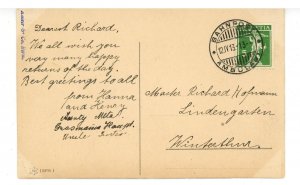 Dearest Richard,
We all wish you
very many happy
returns of the day.
Best greetings to all
from Hanna
and Henry
Aunty Meta
Grossmama Haupt.
Uncle
BAHNPOST
12.IV.13
AMBULANT
HELVETIA
Master Richard Hofmann
Lindengarten
Winterthur